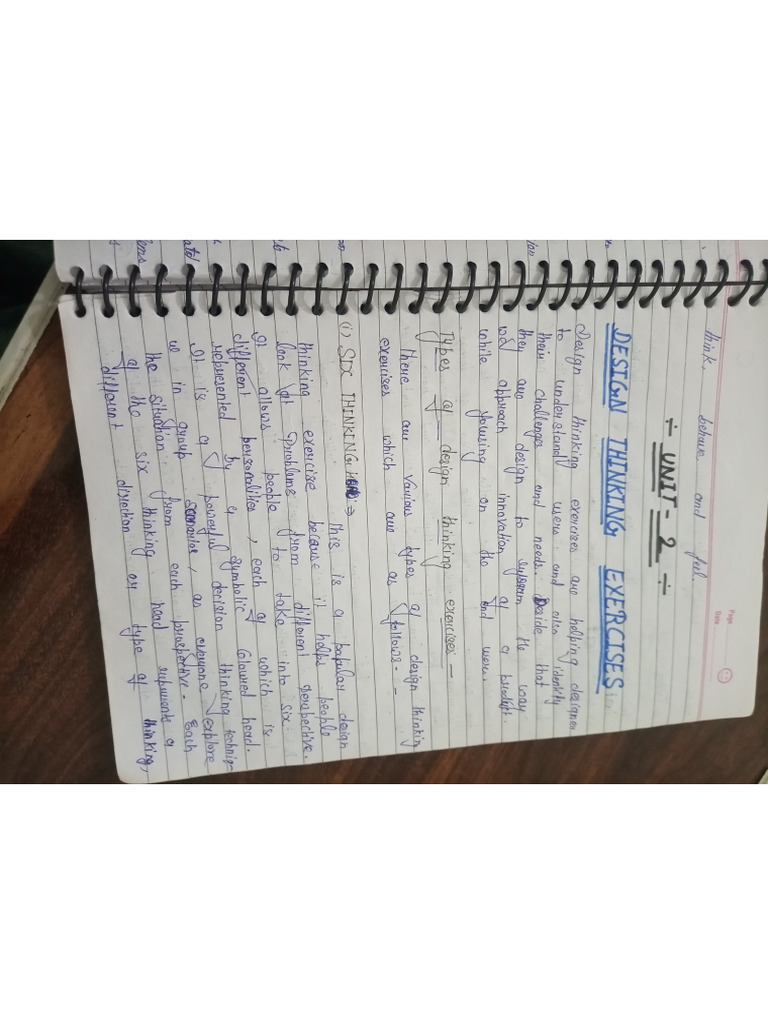 Page
Date
think, behave and feel.
÷ UNIT - 2 ÷
DESIGN THINKING EXERCISES
Design thinking exercises are helping designer
to understand users and also identity
their challenges and needs. Beside that
they are design to the way
will approach innovation of a product.
while focusing on the end user.
Types of design thinking exercises:-
there are various types of design thinkin
exercises which are as follows:-
(i) SIX THINKING ⇒ this is a popular design
thinking exercise because it helps people
look at problems from different perspective.
It allows people to take into six
different personalities, each of which is
represented by a symbolic coloured head.
It is a powerful decision thinking techniq-
ue in group scenarios, as everyone explore
the situation from each prospective. Each
of the six thinking head represents a
different direction or type of thinking,